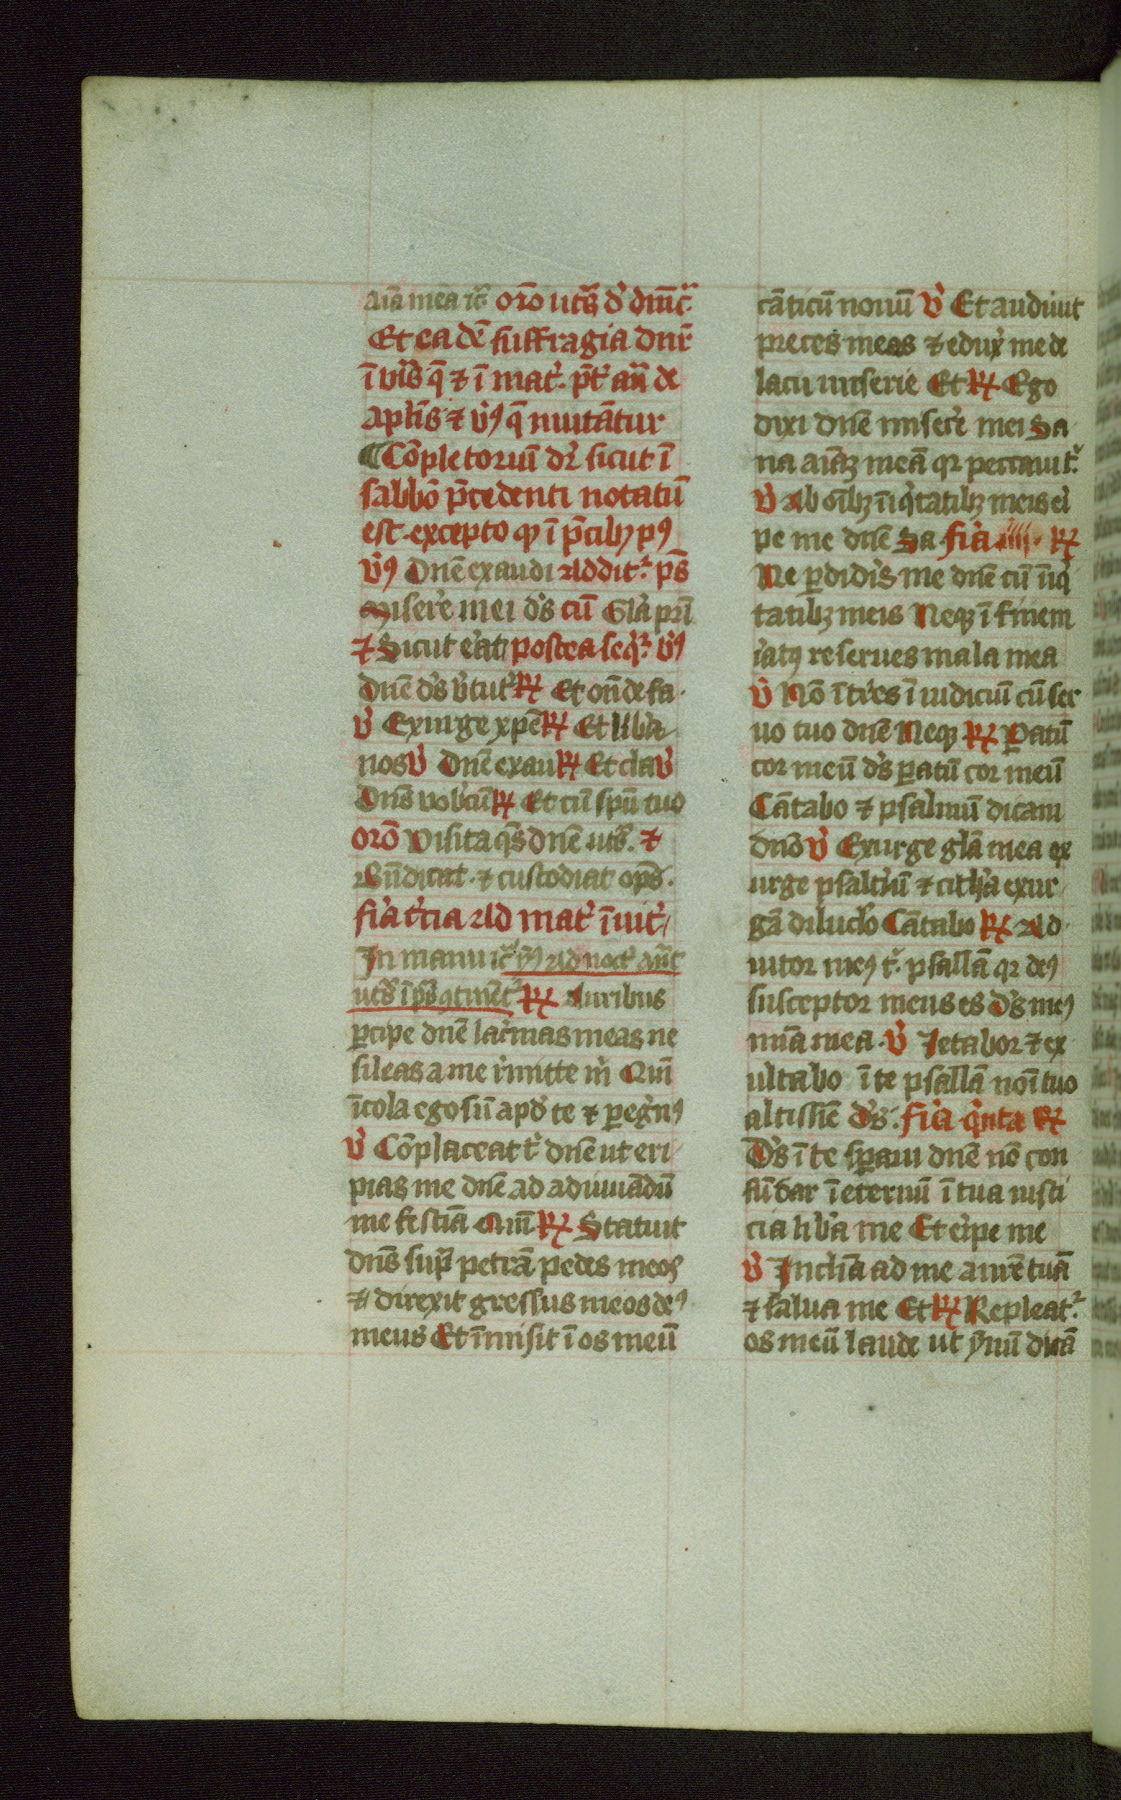 aīa mea ꝛc̄ oro̅ ut sͣ ꝺ̓ dnīcͣ
Et eadē suffragia dnr̄
ī vr̄is q̄ ⁊ ī mat̓. p̄t̓ an̄ de
aplīs ⁊ v̓ꝰ q̄ mutātur
¶ Cōpletoriū dr̄ sicut ī
sabbo̅ p̄cedenti notatū
est. excepto ꝙ ī p̄cibꝫ pꝰ
v̓ꝰ Dnē exaudi addit̓ ps̄
Miserē mei ds̄ cū Glā pri̅
⁊ Sicut erat postea seq̓r v̓ꝰ
Dnē ds̄ v̓tut̓ ℟ Et on̄de fa
℣ Exurge xpē ℟ Et lib̓a
nos ℣ Dnē exau ℟ Et cla ℣
Dns̄ vob̓cū ℟ Et cū spū tuo
oro̅ Visita qs̄ dnē ut sͣ. ⁊
Bn̄dicat. ⁊ custodiat op̄s.
fīa t̓cia Ad mat̓ īuit̓
In manu ꝛc̄ ym̄ꝰ ad noct̓ an̄t
ut sͣ ī ps̄ ꝯtinēt̓ ℟ Auribus
ꝑcipe dnē lac̓mas meas ne
sileas a me r̓mitte m̓ Qm̄
īcola ego sū apd̓ te ⁊ ꝑeg̓nꝰ
℣ Cōplaceat t̓ dnē ut eri
pias me dnē ad adiuuādū
me festīa Qm̄ ℟ Statuit
dns̄ sup̓ petrā pedes meos
⁊ direxit gressus meos deꝰ
meus Et īmisit ī os meū
cāticū nouū ℣ Et audiuit
preces meas ⁊ edux̓ me de
lacu miserie Et ℟ Ego
dixi dnē miserē mei Sa
na aīaꝫ meā qꝛ peccaui t̓
℣ Ab oībꝫ īiq̓tatibꝫ meis ei
pe me dnē Sa fīa .iiii. ℟
Ne ꝑdid̓is me dnē cū īiq̓
tatibꝫ meis Neqꝫ ī finem
iratꝰ reserues mala mea
℣ Nō ītres ī iudiciū cū ser
uo tuo dnē Neqꝫ ℟ Paratū
cor meū ds̄ ꝑatū cor meū
Cātabo ⁊ psalmū dicam
dno̅ ℣ Exurge glā mea ex
urge psalt̓iū ⁊ cith̓a exur
gā diluc̓lo Cātabo ℟ Ad
iutor meꝰ t̓ psallā qꝛ deꝰ
susceptor meus es ds̄ meꝰ
mīa mea. ℣ Letabor ⁊ ex
ultabo ī te psallā noī tuo
altissie̅ ds̄. fīa q̓nta ℟
Ds̄ ī te sꝑaui dnē nō con
fūdar ī eternū ī tua iusti
cia lib̓a me Et eripe me
℣ Inclīa ad me aurē tuā
⁊ salua me Et ℟ Repleat̓
os meū laude ut ymnū dicā